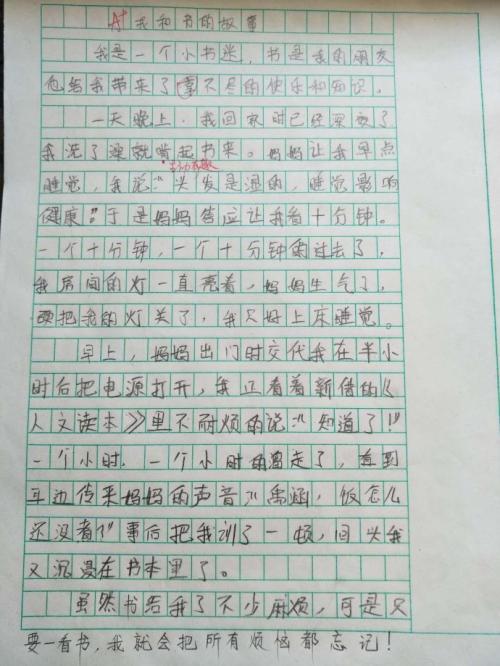 A+ 我和书的故事
我是一个小书迷，书是我的朋友
他给我带来了享不尽的快乐和知识。
一天晚上，我回家时已经深夜了
我洗了澡就啃起书来。妈妈让我早点
生动有趣
睡觉，我说：“头发是湿的，睡觉影响
健康。”于是妈妈答应让我看十分钟。
一个十分钟，一个十分钟的过去了，
我房间的灯一直亮着，妈妈生气了，
硬把我的灯关了，我只好上床睡觉。
早上，妈妈出门时交代我在半小
时后把电源打开，我正看着新借的《
人文读本》里不耐烦的说：“知道了！”
一个小时，一个小时的溜走了，直到
耳边传来妈妈的声音：“禹涵，饭怎么
还没煮？”事后把我训了一顿，回头我
又沉浸在书本里了。
虽然书给我了不少麻烦，可是只
要一看书，我就会把所有烦恼都忘记！